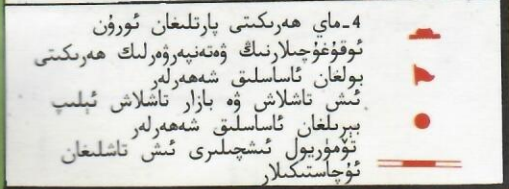 4-ماي ھەرىكىتى پارتلىغان ئورۇن
ئوقۇغۇچىلارنىڭ ۋەتەنپەرۋەرلىك ھەرىكىتى
بولغان ئاساسلىق شەھەرلەر
ئىش تاشلاش ۋە بازار تاشلاش ئېلىپ
بېرىلغان ئاساسلىق شەھەرلەر
تۆمۈريول ئىشچىلىرى ئىش تاشلىغان
ئۇچاستىكىلار